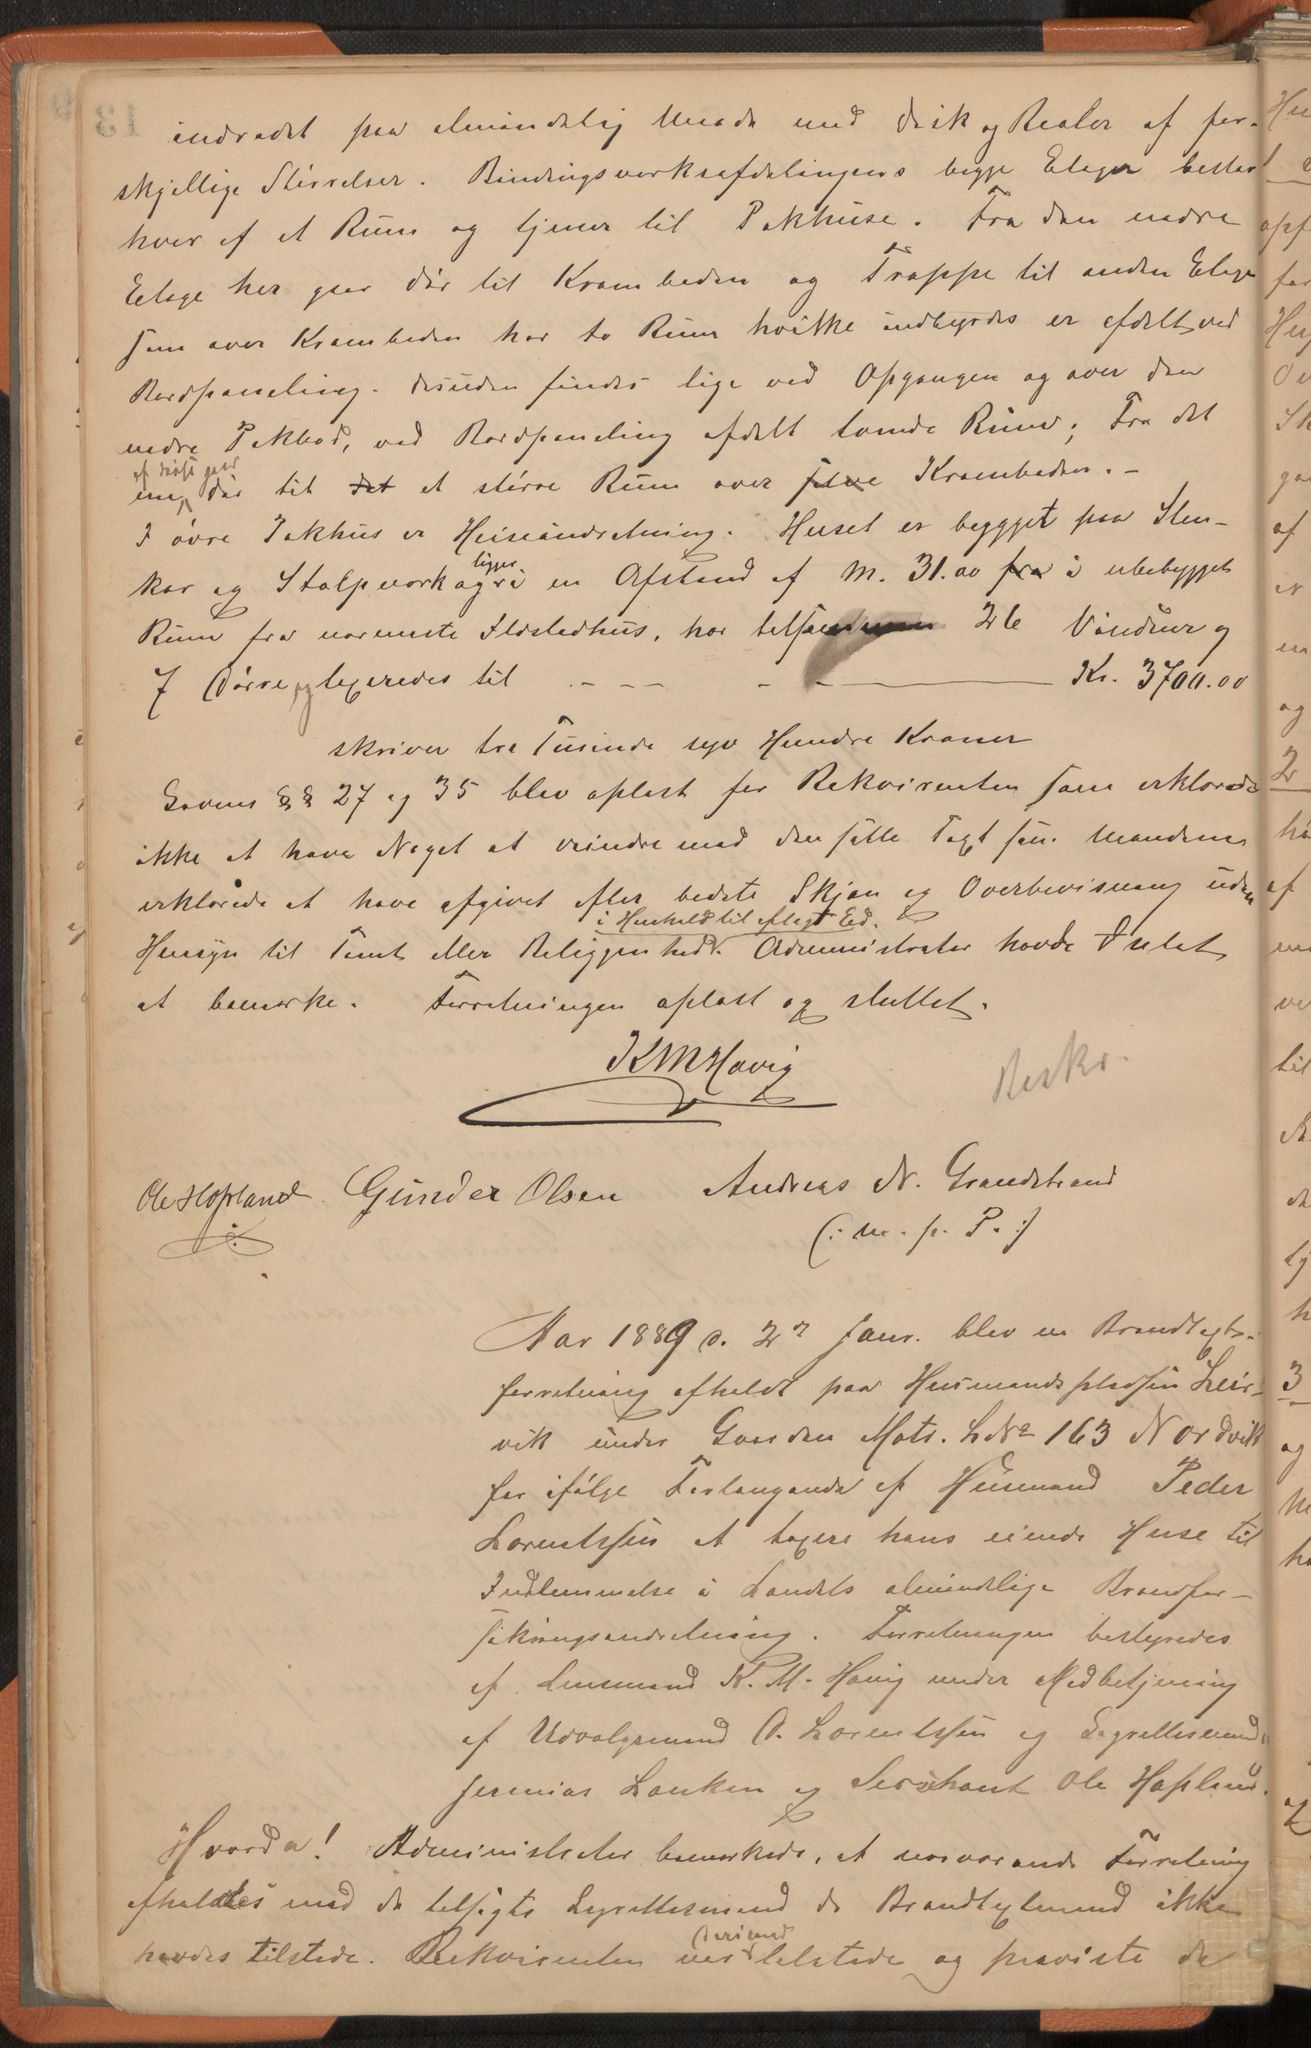 indredet paa almindelig Maade med Disk og Realer af for-
skjellige Størrelser. Bindingsverksafdelingens begge Etager bestaar
hver af et Rum og tjener til Pakhuse. Fra den nedre
Etage her gaar Dør til Kramboden og Trappe til anden Etage
som over Kramboden har to Rum hvilke indbyrdes er afdelt ved
Bordpaneling. Desuden findes lige ved Opgangen og over den
nedre Pakbod, ved Bordpaneling afdelt tvende Rum; Fra det
af disse gaar
ene Dør til det et større Rum over selve Kramboden. -
I øvre Pakhus er Heiseindretning. Huset er bygget paa Sten-
ligger
kar og Stolpverk og i en Afstand af M. 31.00 fra i ubebygget
Rum fra nærmeste Ildstedhus, har 26 Vinduer og
7 Dørre, og taxeredes til - - - - - Kr. 3700.00
skriver tre Tusinde syv Hundre Kroner
Lovens §§ 27 og 35 blev oplæst for Rekvirenten som erklærede
ikke at have Noget at erindre mod den satte Taxt sum. Mændene
erklærede at have afgivet efter bedste Skjøn og Overbevisning uden
i Henhold til aflagt Ed.
Hensyn til Tomt eller Beliggenhed. Administrator havde Intet
at bemærke. Forretningen oplæst og sluttet.
K M Havig
Beskr.
Ole Hopland Gunder Olsen Andreas N. Grandstrand
(: m. p. P. :)
Aar 1889 d. 2n Janr. blev en Brandtaxts-
forretning afholdt paa Husmandspladsen Leir-
vik under Gaarden Matr. LNo 163 Nordvik
for ifølge Forlangende af Husmand Peder
Lorentssen at taxere hans eiende Huse til
Indlemmelse i Landets almindelige Brandfor-
sikringsindretning. Forretningen bestyredes
af Lensmand K. M. Havig under Medbetjening
af Udvalgsmand O. Lorentssen og Lagrettesmænd
Jeremias Lanken og Sersjant Ole Hopland.
Hvorda! Administrator bemærkede, at nærværende Forretning
afholdtes med de tilsagte Lagrettesmænd da Brandtaxtmænd ikke
Personlig
havdes tilstede. Rekvirenten var tilstede og paaviste de